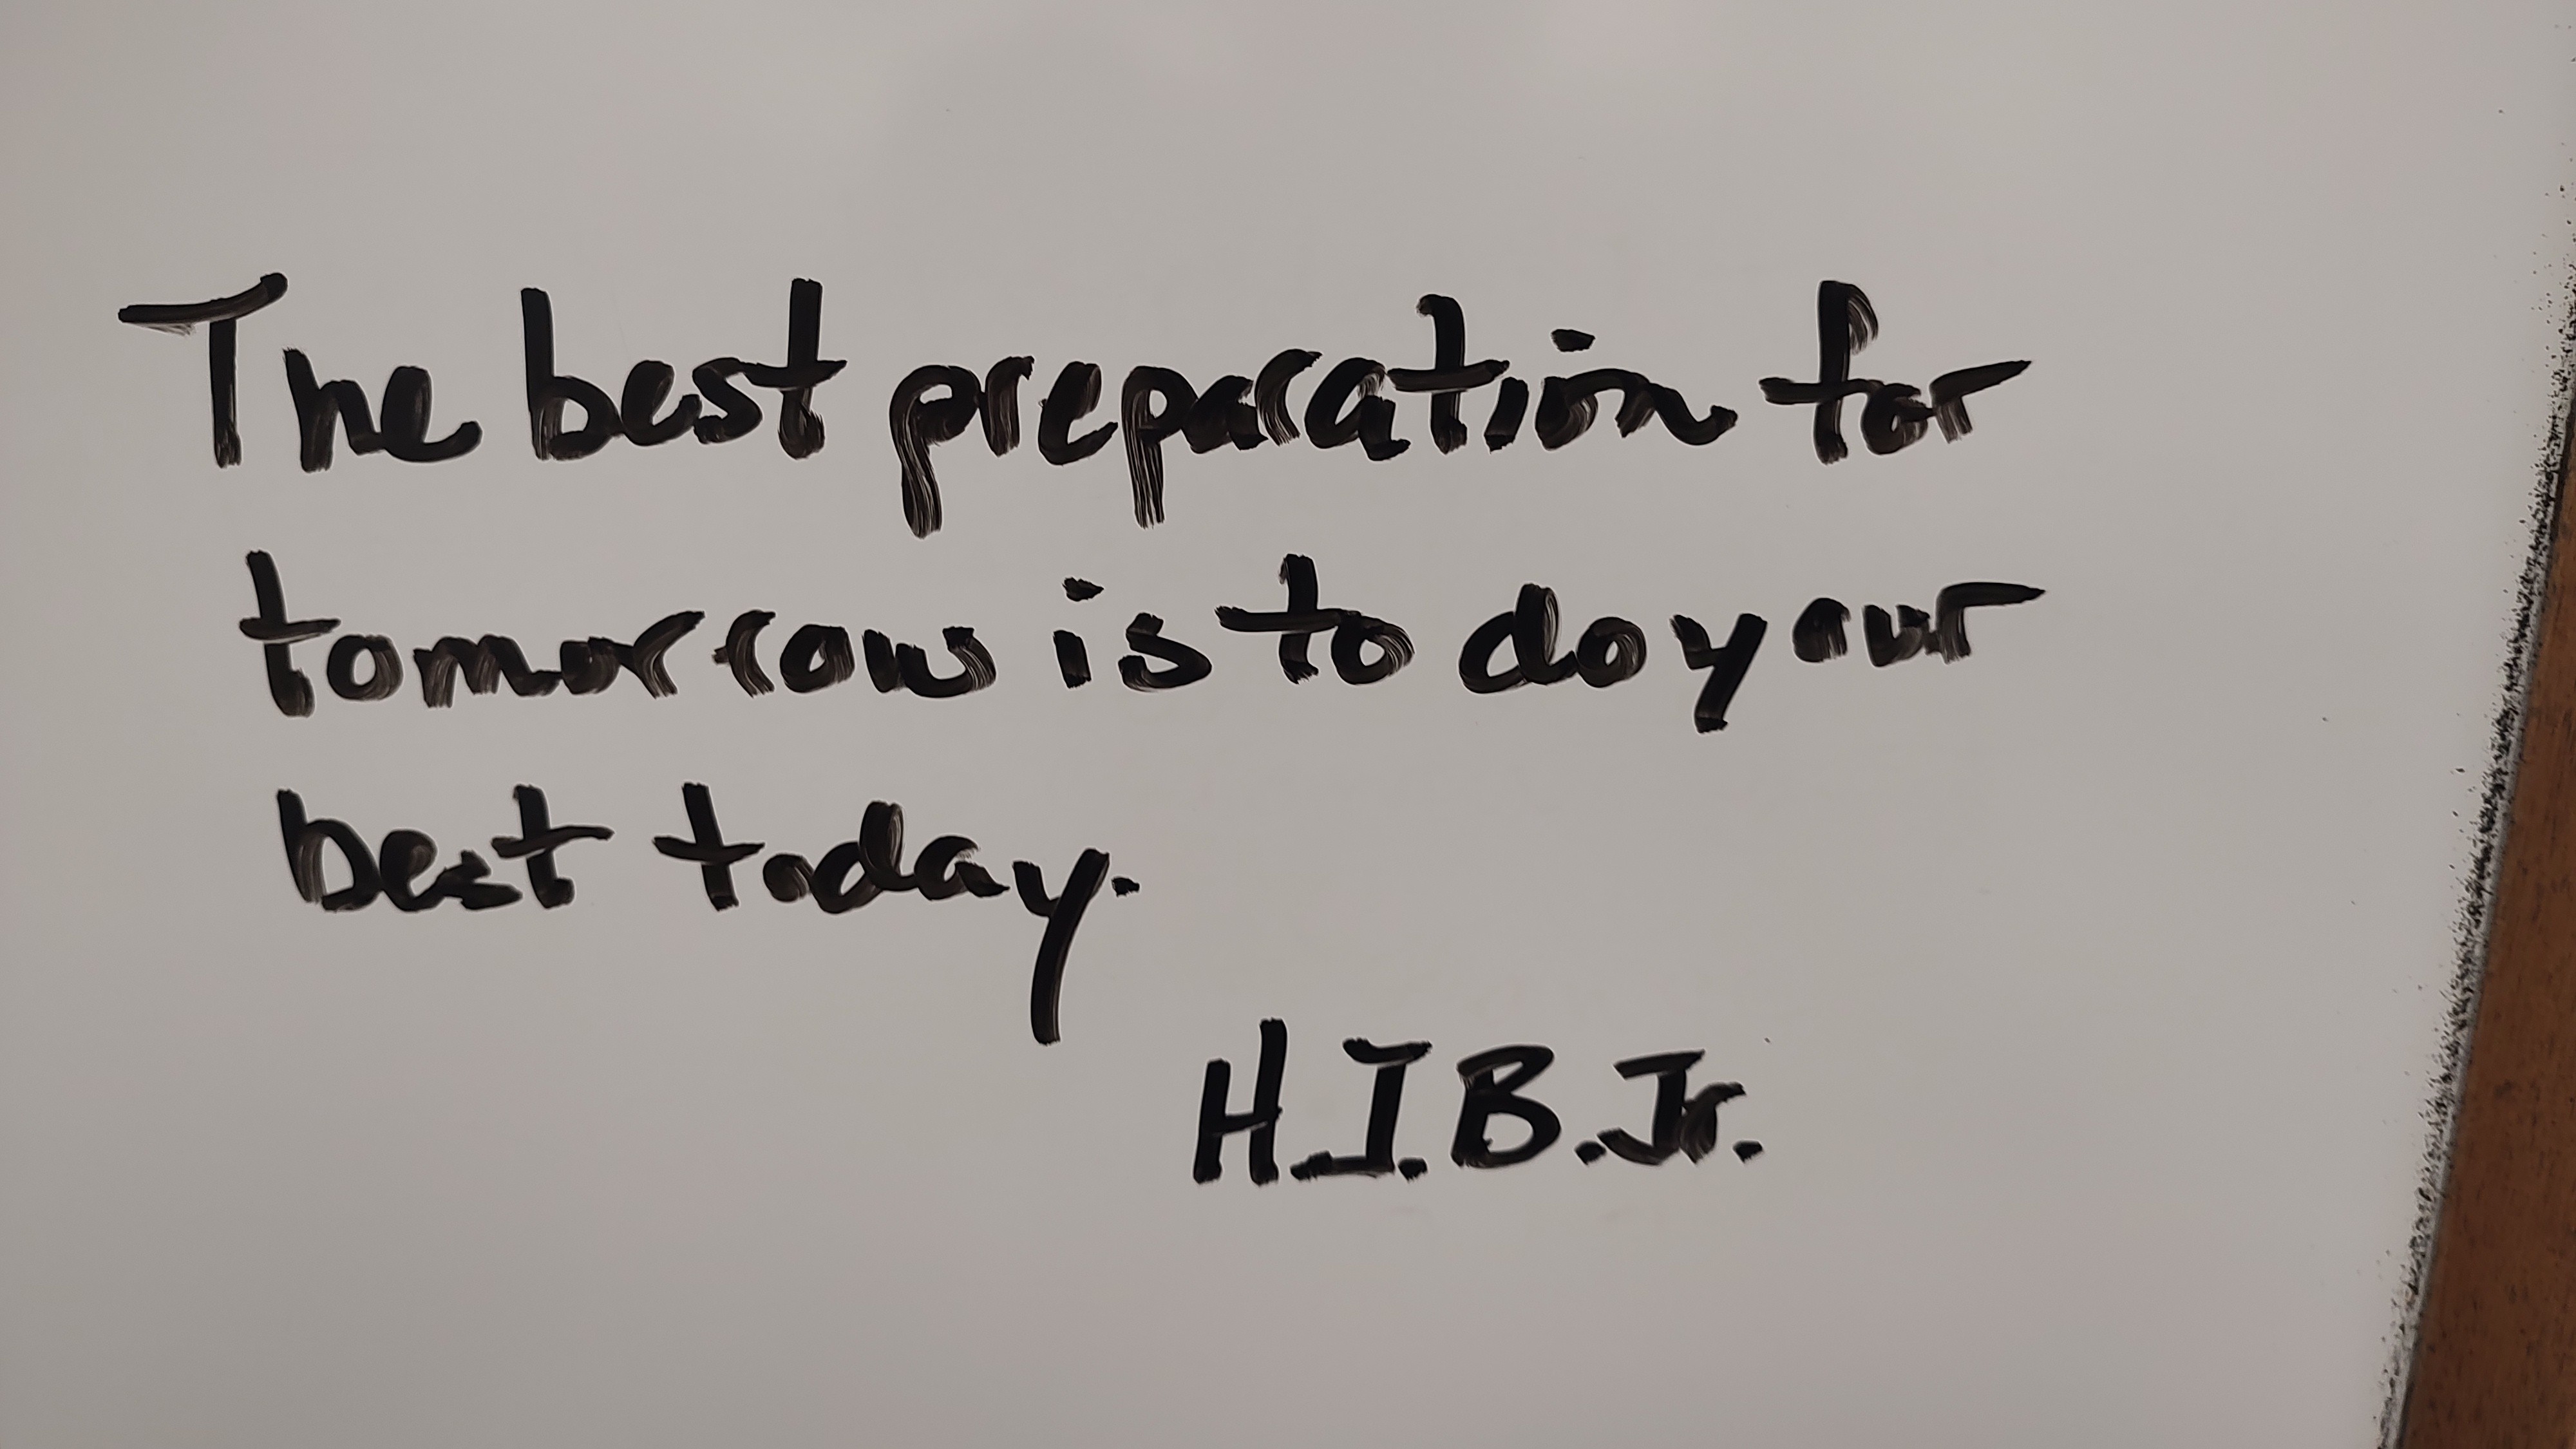 The best preparation for
tomorrow is to do your
best today.
H.J.B.Jr.